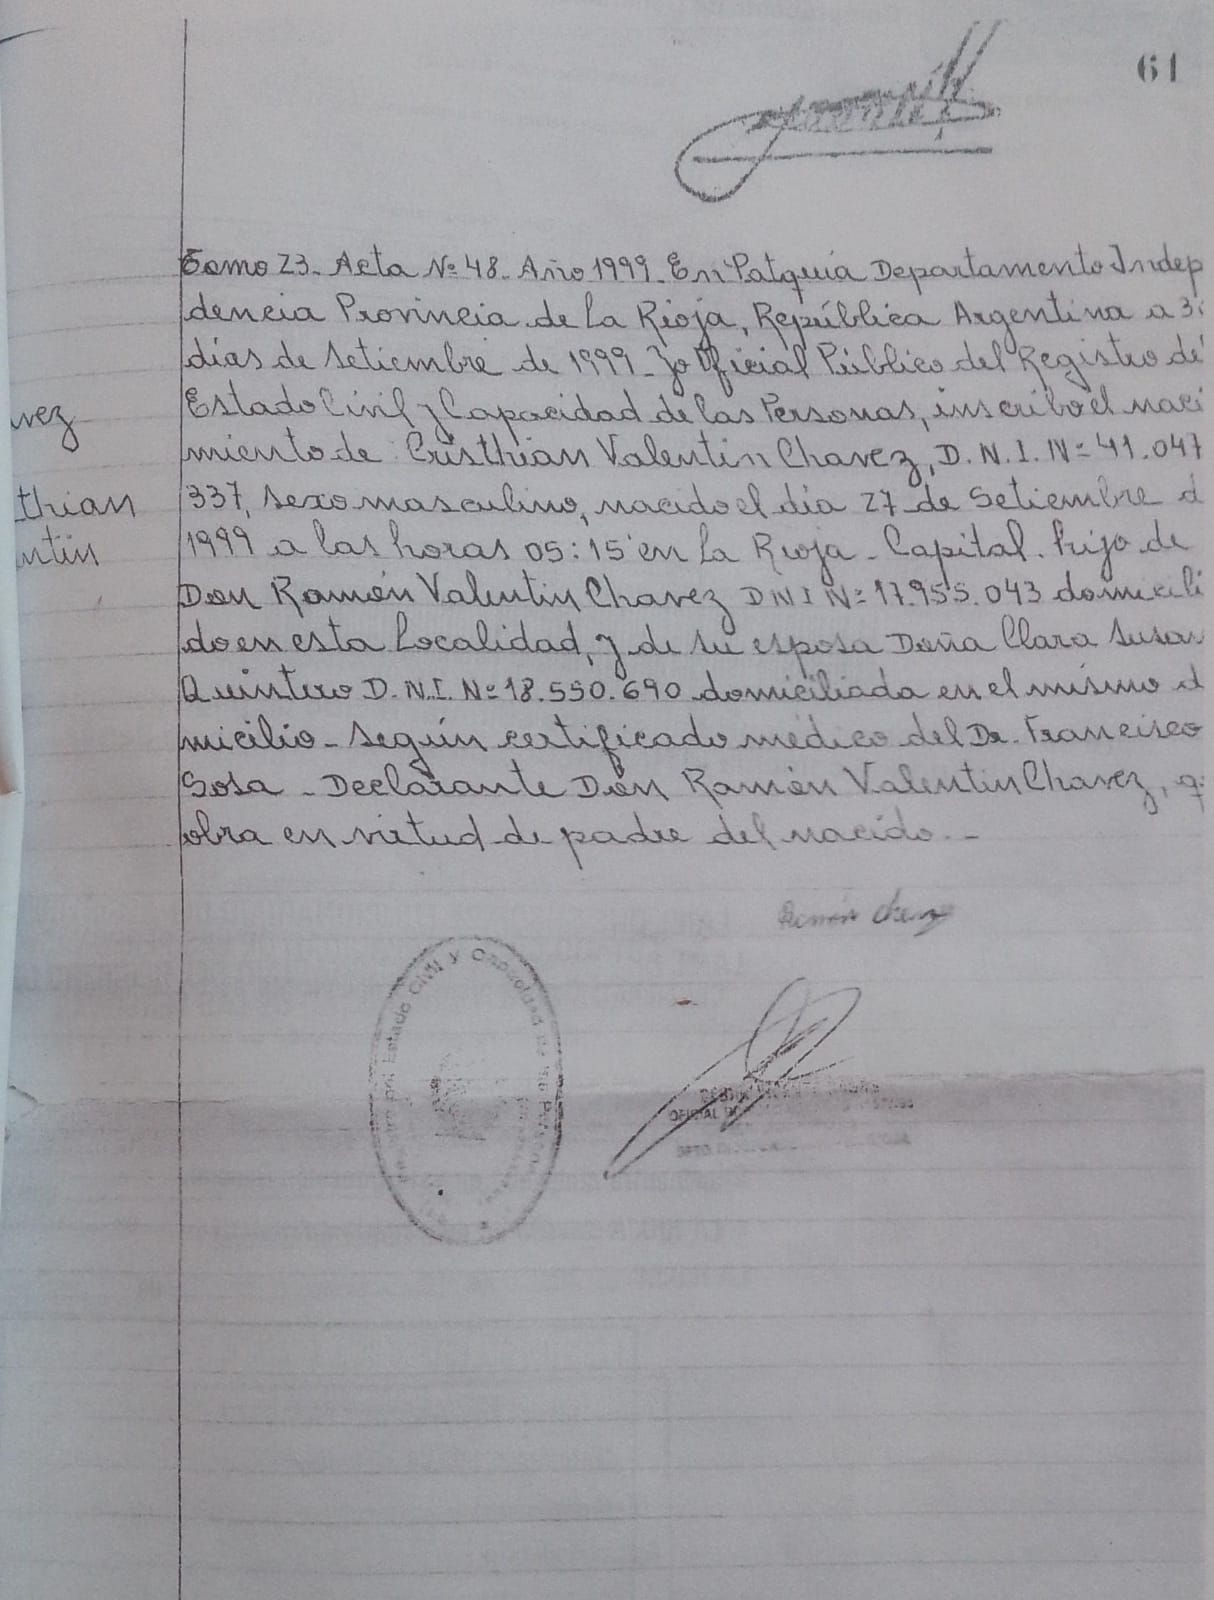 61
Tomo 23. Acta Nº 48. Año 1999. En Patquía Departamento Indep
dencia Provincia de La Rioja, República Argentina a 3
días de Setiembre de 1999. Yo Oficial Público del Registro de
Estado Civil y Capacidad de las Personas, inscribo el naci
miento de: Cristhian Valentin Chavez, D.N.I. Nº 41.047
337, sexo masculino, nacido el día 27 de Setiembre d
1999 a las horas 05:15 en La Rioja - Capital. hijo de
Don Ramón Valentin Chavez DNI Nº 17.955.043 domicili
do en esta Localidad, y de su esposa Doña Clara Susa
Quintero D.N.I. Nº 18.550.690 domiciliada en el mismo d
micilio - Según certificado médico del Dr. Francisco
Sosa - Declarante Don Ramón Valentin Chavez, q
obra en virtud de padre del nacido. -
vez
thian
ntin
Ramón Chavez
Estado Civil y Capacidad de
OFICIAL